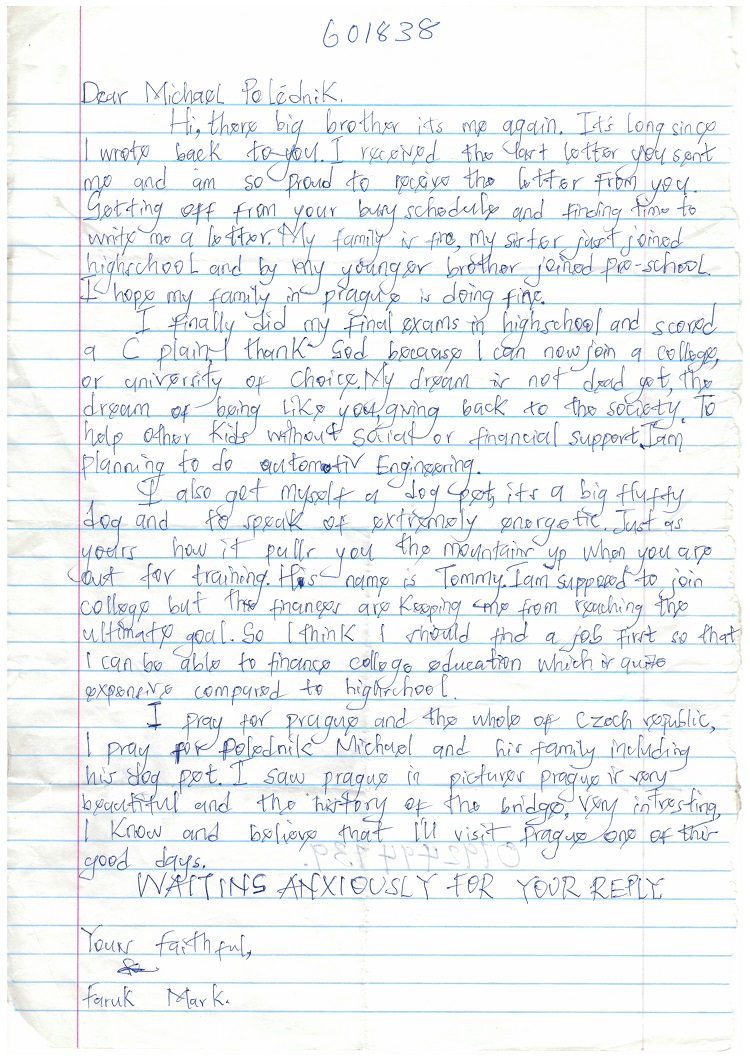 601838
Dear Michael Polédnik.
Hi, there big brother its me again. It's long since
I wrote back to you. I received the last letter you sent
me and am so proud to receive the letter from you.
Getting off from your busy schedule and finding time to
write me a letter. My family is fine, my sister just joined
highschool and by my younger brother joined pre-school.
I hope my family in prague is doing fine.
I finally did my final exams in highschool and scored
a C plain, I thank God because I can now join a college,
or university of choice. My dream is not dead yet, the
dream of being like you, giving back to the society. To
help other kids without social or financial support. Iam
planning to do automotiv Engineering.
I also get myself a dog pet, its a big fluffy
dog and to speak of extremely energetic. Just as
yours how it pulls you the mountains up when you are
out for training. His name is Tommy. Iam supposed to join
college but the finances are keeping me from reaching the
ultimate goal. So I think I should find a job first so that
I can be able to finance college education which is quite
expensive compared to highschool.
I pray for prague and the whole of Czech republic,
I pray for Polednik Michael and his family including
his dog pet. I saw prague in pictures prague is very
beautiful and the history of the bridge, very intresting,
I know and believe that I'll visit Prague one of this
good days.
WAITING ANXIOUSLY FOR YOUR REPLY
Yours faithful,
Faruk Mark.